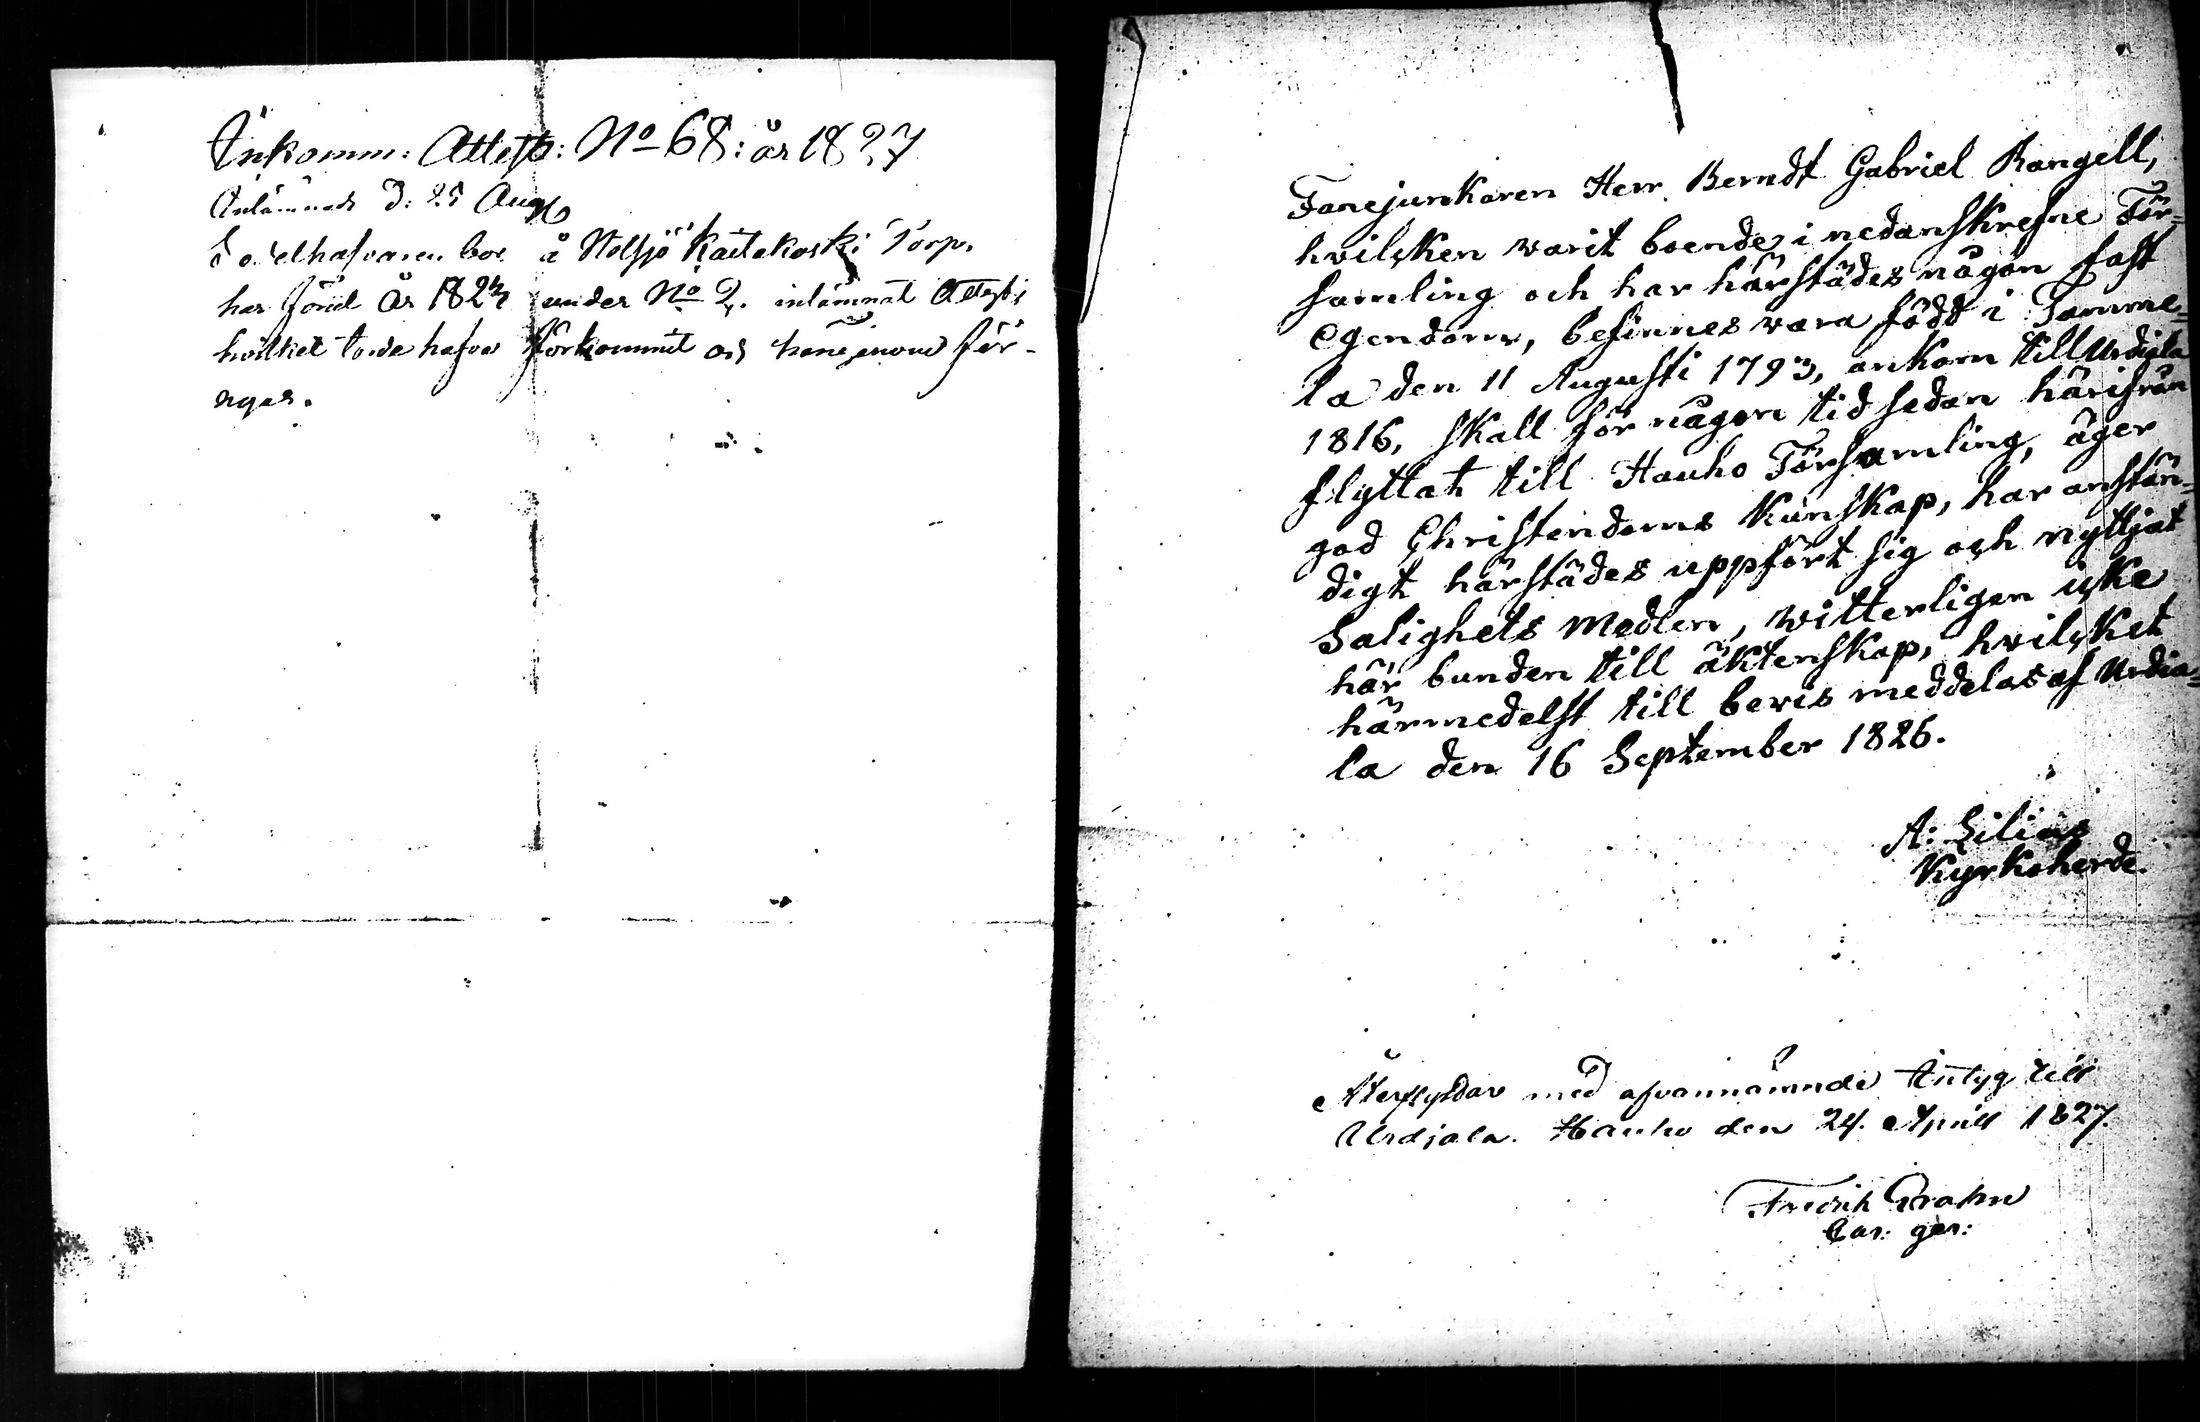 Inkomm: Attest: No 68: år 1827
Inlämnad d: 25 Aug
Sedelhafvaren bor å Nolsjö Kaitakoski Torp,
har förut År 1823 under No 2. inlämnat Attest;
hvilket torde hafva förkommit och härigenom för-
nyas.
Fanejunkaren Herr Berndt Gabriel Rangell,
hvilcken warit boende i nedanskrefne För-
samling och har härstädes någon fast
egendom, befinnes vara född i Tamme-
la den 11 Augusti 1793, ankom till Urdiala
1816, skall för någon tid sedan härifrån
flyttat till Hauho Församling, äger
god Christendoms Kunskap, har anstän-
digt härstädes uppfört sig och nyttjat
Salighets Medlen, witterligen icke
här bunden till äktenskap, hvilcket
härmedelst till bevis meddelas af Urdia-
la den 16 September 1826.
A: Lilius
Kyrkoherde.
Återflyttar med ofvannämnde Intyg till
Urdjala. Hauho den 24. April 1827.
Fredrik Grahn